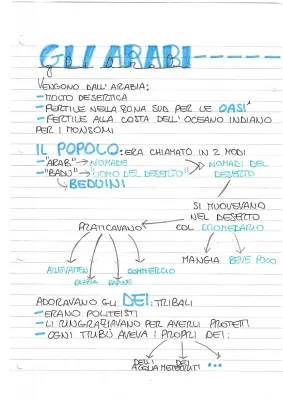 GLI ARABI
VENGONO DALL'ARABIA:
- MOLTO DESERTICA
- FERTILE NELLA ZONA SUD PER LE OASI
- FERTILE ALLA COSTA DELL'OCEANO INDIANO
PER I MONSONI
IL POPOLO: ERA CHIAMATO IN 2 MODI
- "ARAB" → NOMADE
NOMADI DEL
DESERTO
- "BADW" → "UOMO DEL DESERTO"
BEDUINI
SI MUOVEVANO
NEL DESERTO
COL DROMEDARIO
PRATICAVANO
MANGIA BEVE POCO
ALLEVAMEN
COMMERCIO
RAZZIA RAPINE
ADORAVANO GLI DEI TRIBALI
- ERANO POLITEISTI
- LI RINGRAZIAVANO PER AVERLI PROTETTI
- OGNI TRIBÙ AVEVA I PROPRI DEI:
DELL'
ACQUA
DEI
METEORITI
...